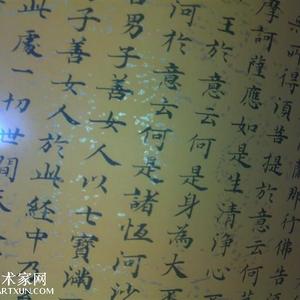 那行佛告
所得須菩提於意云何
摩訶薩應如是生清淨心
王於意云何是身為大
河於意云何是諸恆河沙
男子善女人以七寶滿
子善女人於此經中乃
此處一切世間天
术家网
ARTXUN.COM